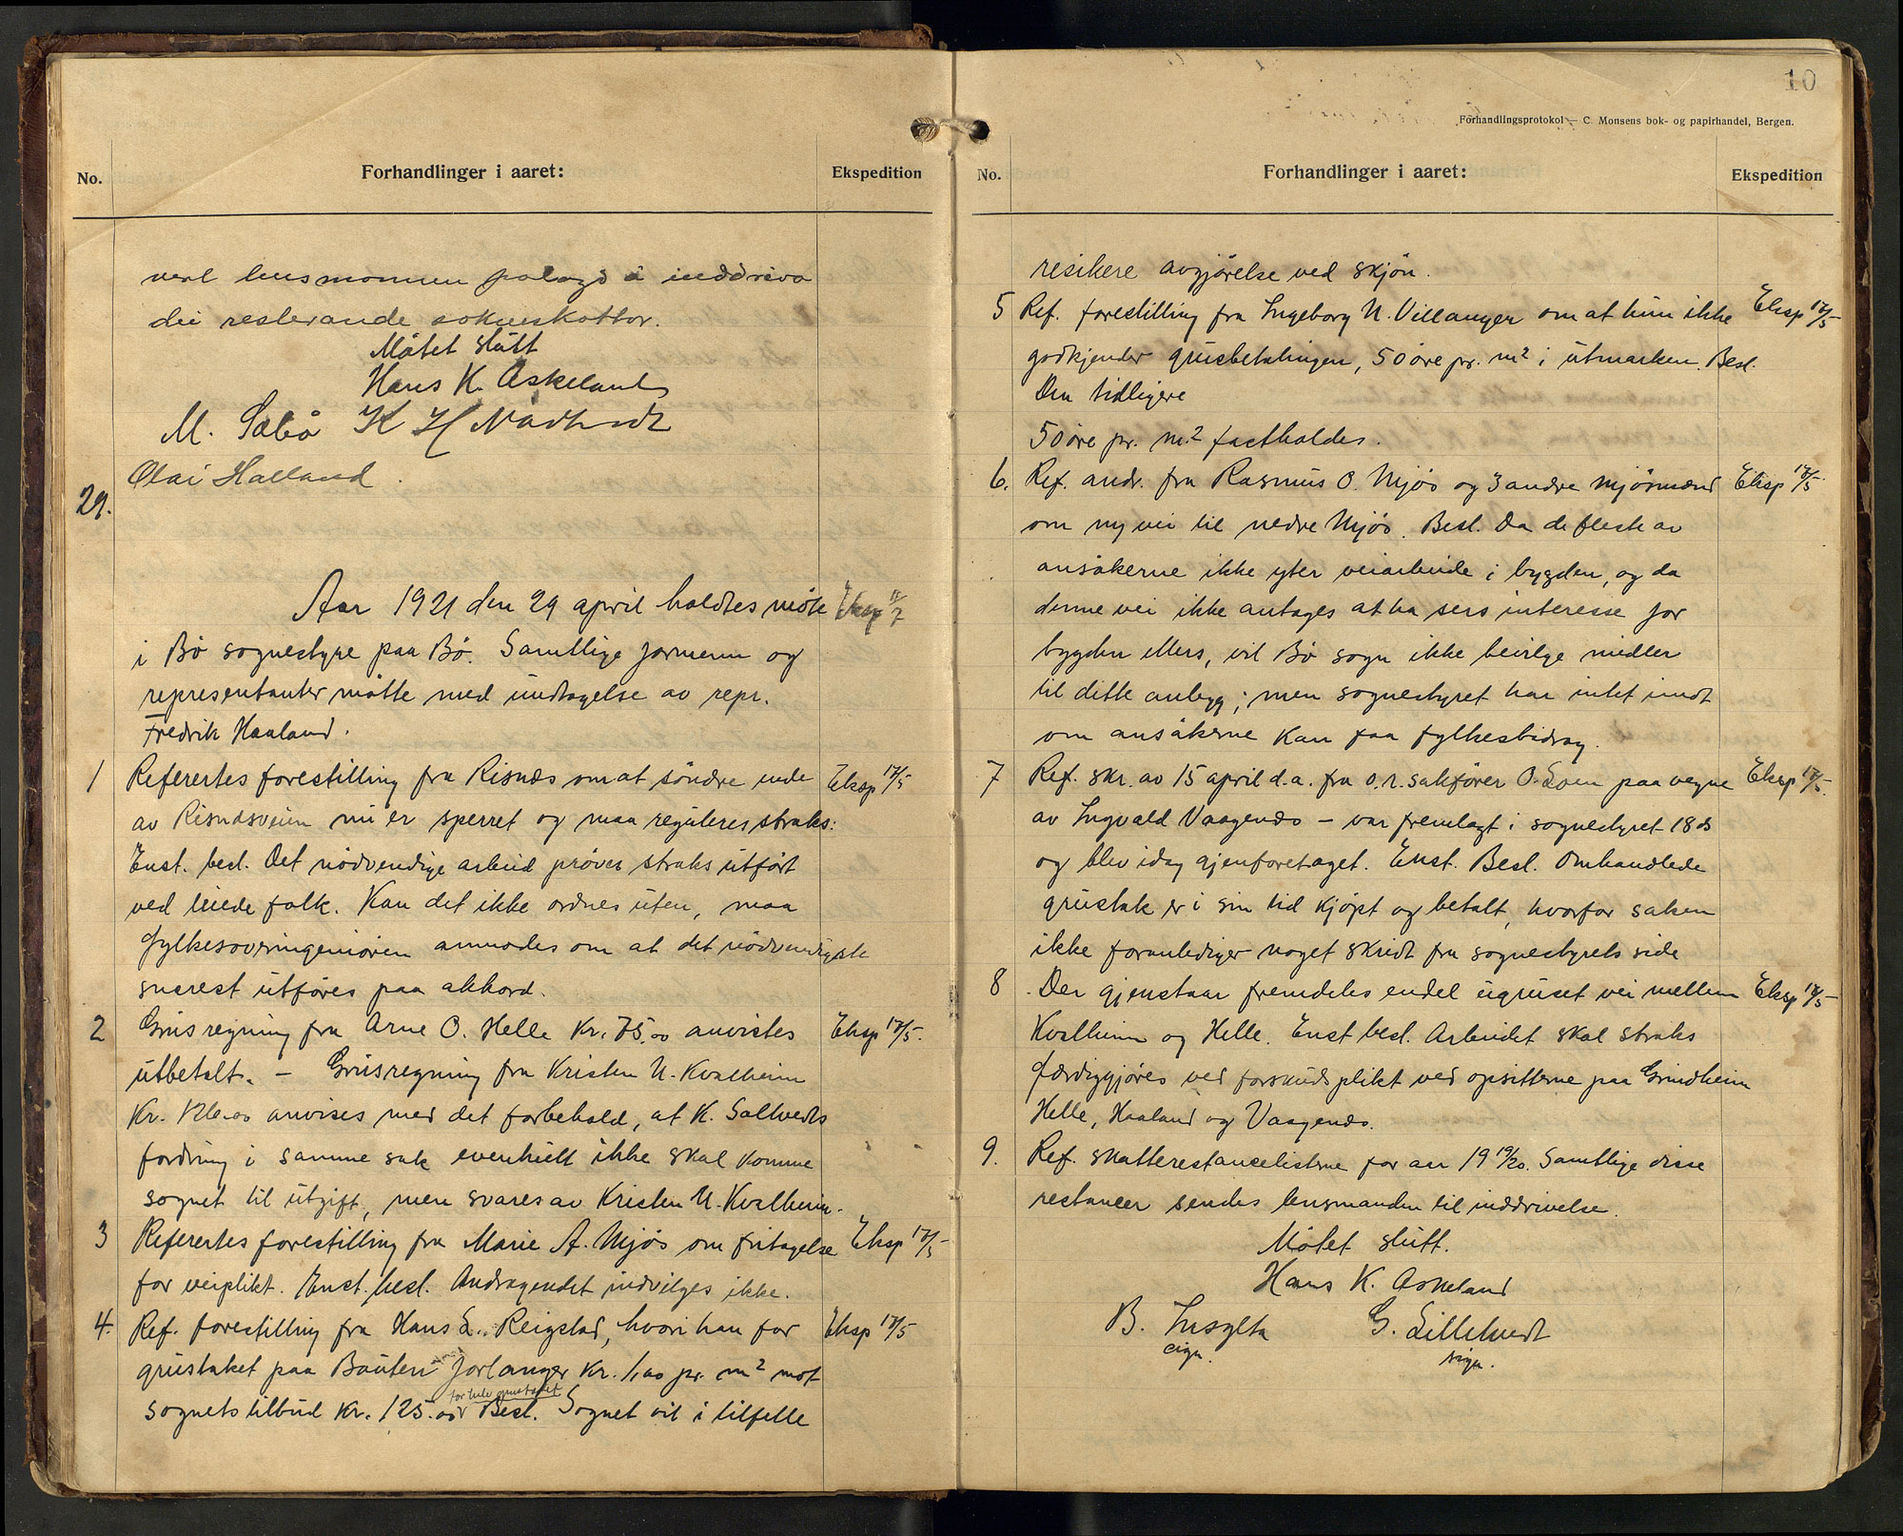 No. Forhandlinger i aaret: Ekspedition
vert lensmannen paalagd å inddriva
dei resterande sokneskattar.
Møtet slutt
Hans K. Askeland
M. Sæbø K H Nødtvedt
Olai Halland.
29.
Aar 1921 den 29 april holdtes møte Eksp
i Bø sognestyre paa Bø. Samtlige formenn og
representanter møtte med undtagelse av repr.
Fredrik Haaland.
1 Referertes forestilling fra Risnæs om at søndre ende Eksp 17/5
av Risnæsveien nu er sperret og maa reguleres straks:
Enst. besl. Det nødvendige arbeid prøves straks utført
ved leiede folk. Kan det ikke ordnes uten, maa
fylkesoveringeniøren anmodes om at det nødvendigste
snarest utføres paa akkord.
2 Grusregning fra Arne O. Helle Kr. 75,00 anvistes Eksp 17/5.
utbetalt. – Grusregning fra Kristen N. Kvalheim
Kr. 126.00 anvises med det forbehold, at K. Saltvedts
fordring i samme sak eventuelt ikke skal komme
sognet til utgift, men svares av Kristen N. Kvalheim.
3 Referertes forestilling fra Marie A. Mjøs om fritagelse Eksp 17/5
for veiplikt. Enst. besl. Andragendet indvilges ikke.
4. Ref. forestilling fra Hans L. Reigstad, hvori han for Eksp 17/5
grustaket paa Bauten forlanger kr. 1,00 pr. m² mot
for hele grustaket
sognets tilbud kr. 125.00 Besl. Sognet vil i tilfelle
10
Forhandlingsprotokol – C. Monsens bok- og papirhandel, Bergen.
No. Forhandlinger i aaret: Ekspedition
risikere avgjørelse ved skjøn.
5 Ref. forestilling fra Ingeborg N. Villanger om at hun ikke Eksp 17/5
godkjender grusbetalingen, 50 øre pr. m² i utmarken. Besl.
Den tidligere
50 øre pr. m.² fastholdes.
6. Ref. andr. fra Rasmus O. Mjøs og 3 andre Mjøsmænd Eksp 17/5.
om ny vei til nedre Mjøs. Besl. Da de fleste av
ansøkerne ikke yter veiarbeide i bygden, og da
denne vei ikke antages at ha sers interesse for
bygden ellers, vil Bø sogn ikke bevilge midler
til dette anlegg; men sognestyret har intet imot
om ansøkerne kan faa fylkesbidrag.
7 Ref. skr. av 15 april d.a. fra o.r. sakfører O. Loen paa vegne Eksp 17/5.
av Ingvald Vaagenæs – var fremlagt i sognestyret 18 ds
og blev idag gjenforetaget. Enst. Besl. Omhandlede
grustak er i sin tid kjøpt og betalt, hvorfor saken
ikke foranlediger noget skridt fra sognestyrets side
8 Der gjenstaar fremdeles endel ugruset vei mellem Eksp 17/5
Kvalheim og Helle. Enst besl. Arbeidet skal straks
færdiggjøres ved forskudsplikt ved opsitterne paa Grindheim
Helle, Haaland og Vaagenæs.
9. Ref. skatterestancelisterne for aar 19 19/20. Samtlige disse
restancer sendes lensmanden til inddrivelse.
Møtet slutt.
Hans K. Askeland
B. Insylta G. Lilletvedt
sign. sign.